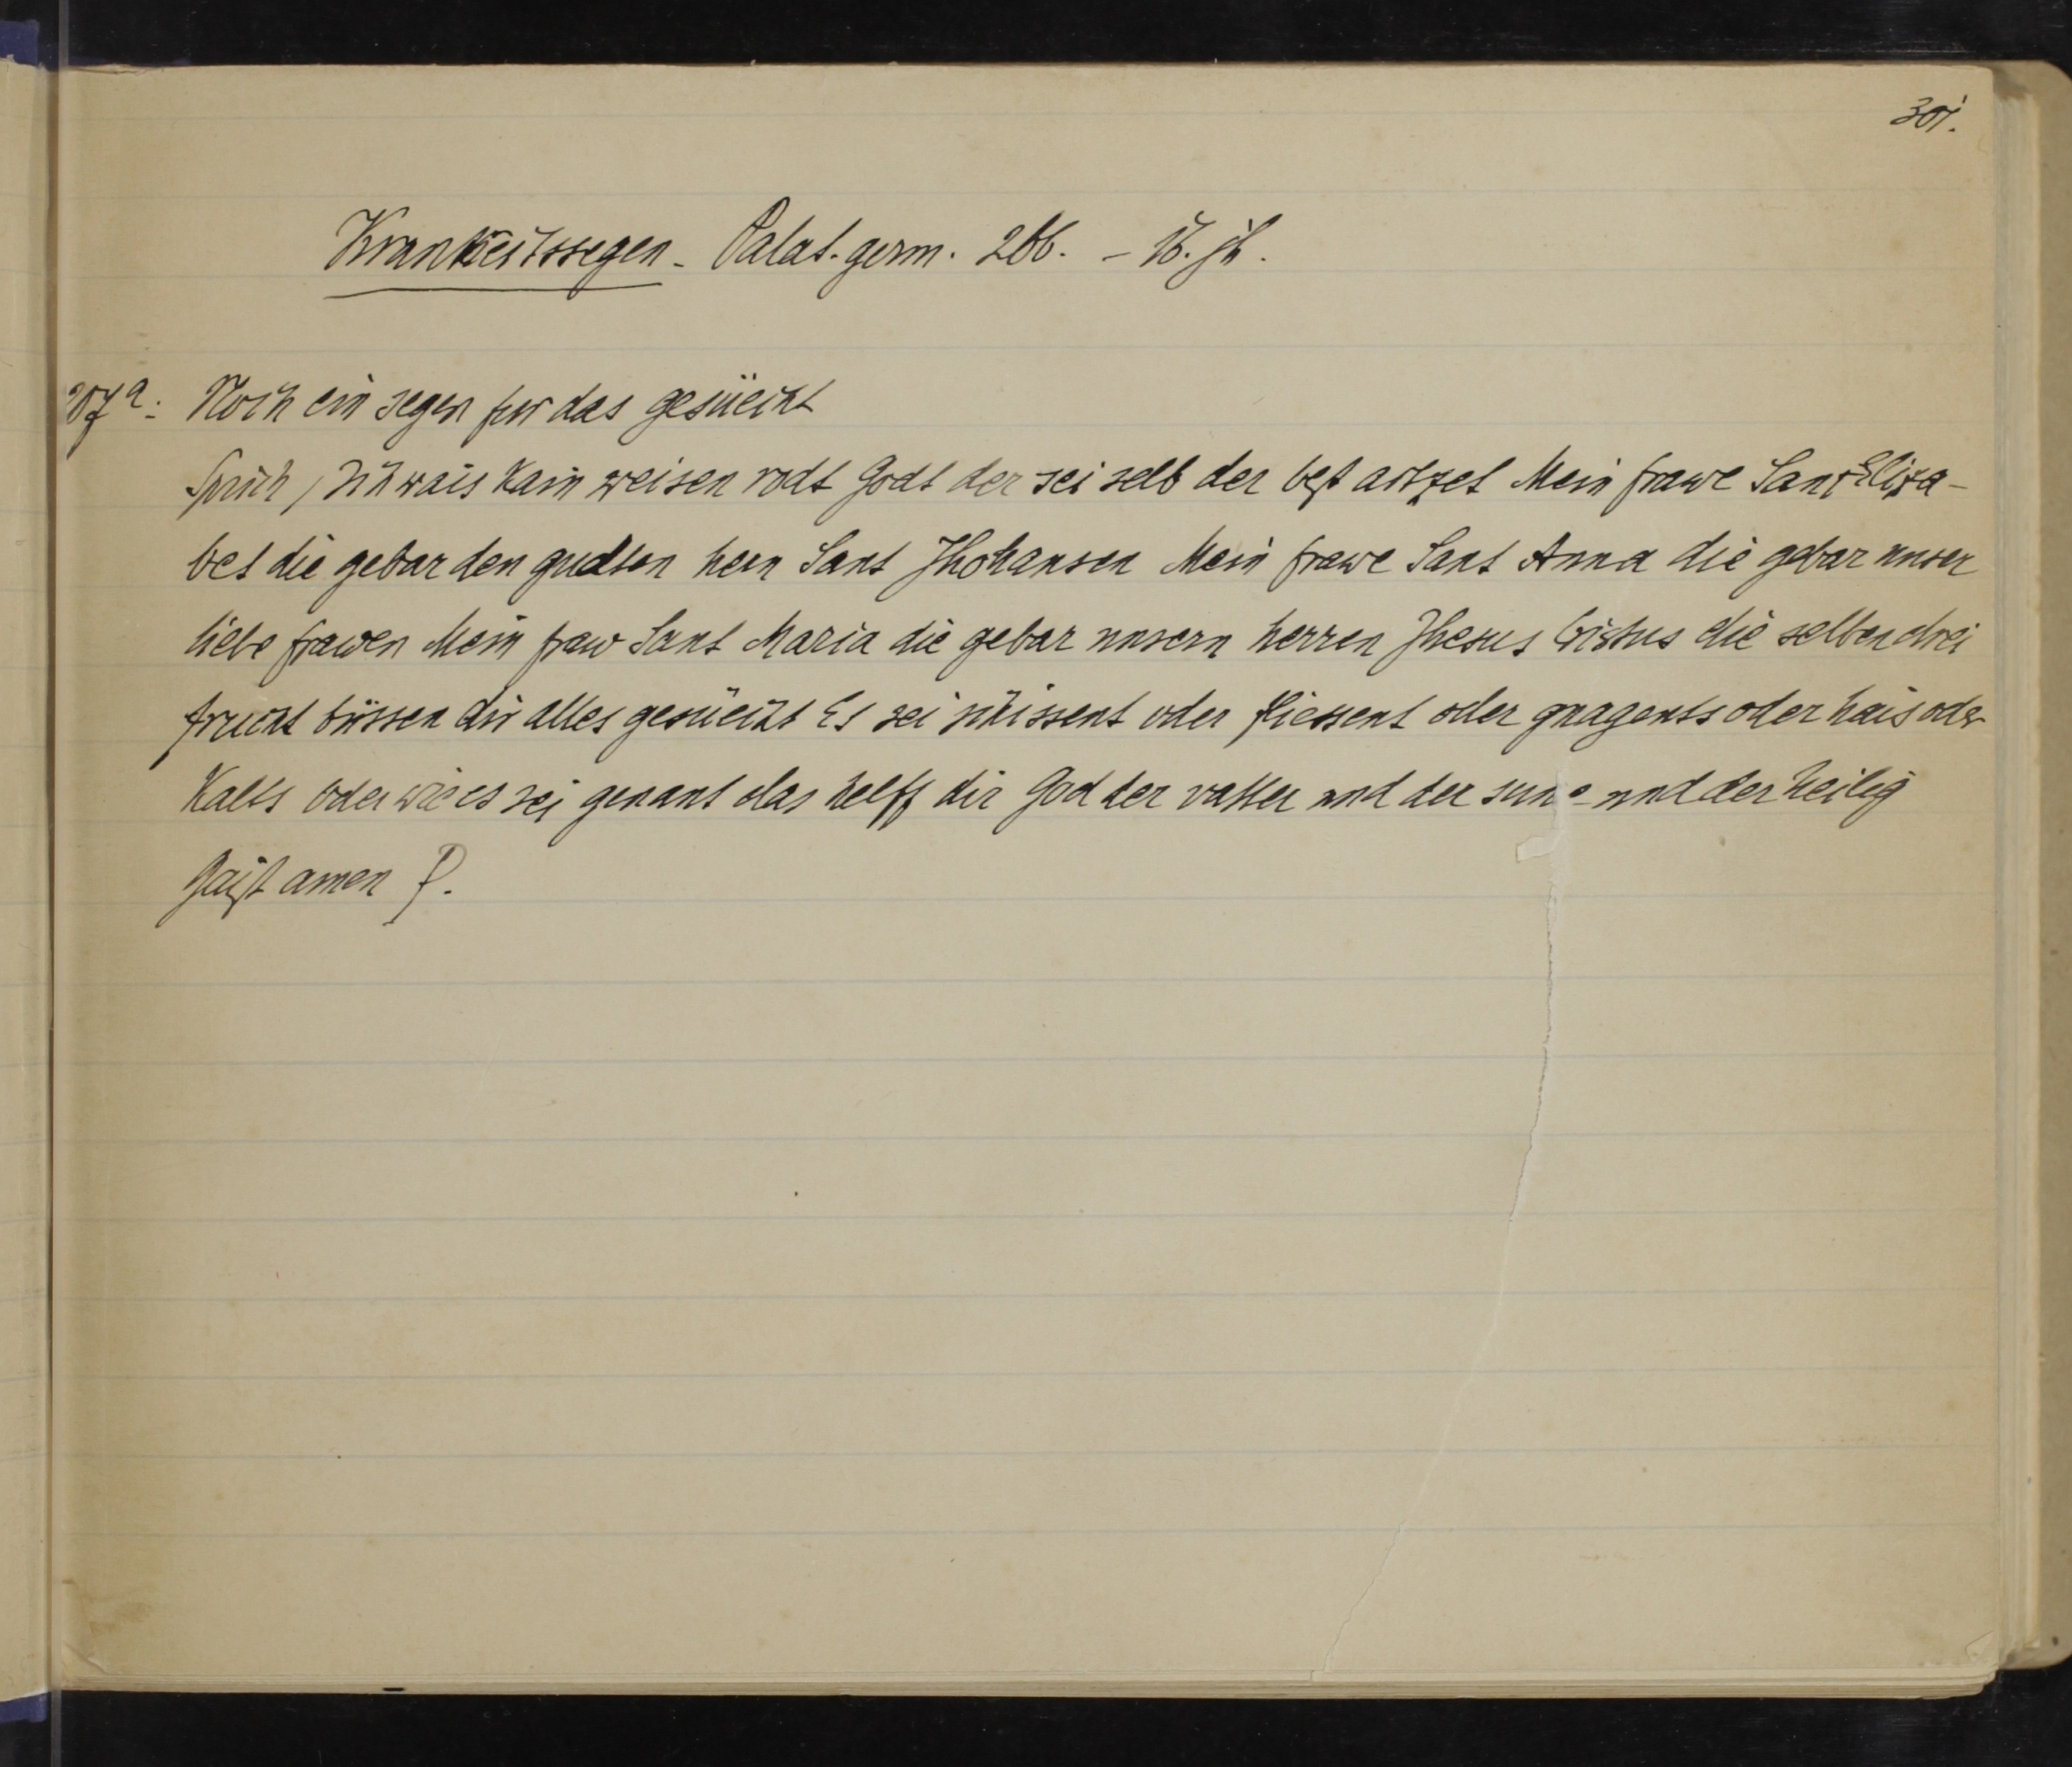 301.
Krankeitssegen - Palat. germ. 266. - 16. jh.
207a: Noch ein segen fur das gesüecht
Sprich / Ich wais kain weisen rodt Godt der sei selb der best artzet Mein frawe Sant Eliza-
bet die gebar den gudten hern Sant Jhohansen Mein frawe Sant Anna die gebar unser
liebe frawen Mein fraw Sant Maria die gebar unsern herren Jhesus Cristus die selben drei
frucht büssen dir alles gesüecht Es sei schissent oder fliessent oder gnagents oder hais oder
Kalts oder wie es sei genant das helff dir God der vatter und der sune und der heilig
Gaist amen